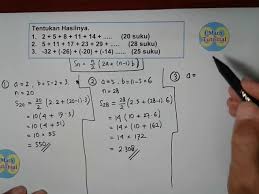 Tentukan Hasilnya.
1. 2 + 5 + 8 + 11 + 14 + ..... (20 suku)
2. 5 + 11 + 17 + 23 + 29 + ..... (28 suku)
3. -32 + (-26) + (-20) + (-14) ..... (25 suku)
Sn = n/2 (2a + (n-1) b)
① a = 2 , b = 5-2 = 3
n = 20
S20 = 20/2 (2.2 + (20-1) .3)
= 10 (4 + 19.3)
= 10 (4 + 57)
= 10 × 55
= 550
② a = 5 . b = 11-5 = 6
n = 28
S28 = 28/2 (2.5 + (28-1) 6)
= 14 (10 + 27.6)
= 14 (10 + 162)
= 14 × 172
= 2308
③ a =